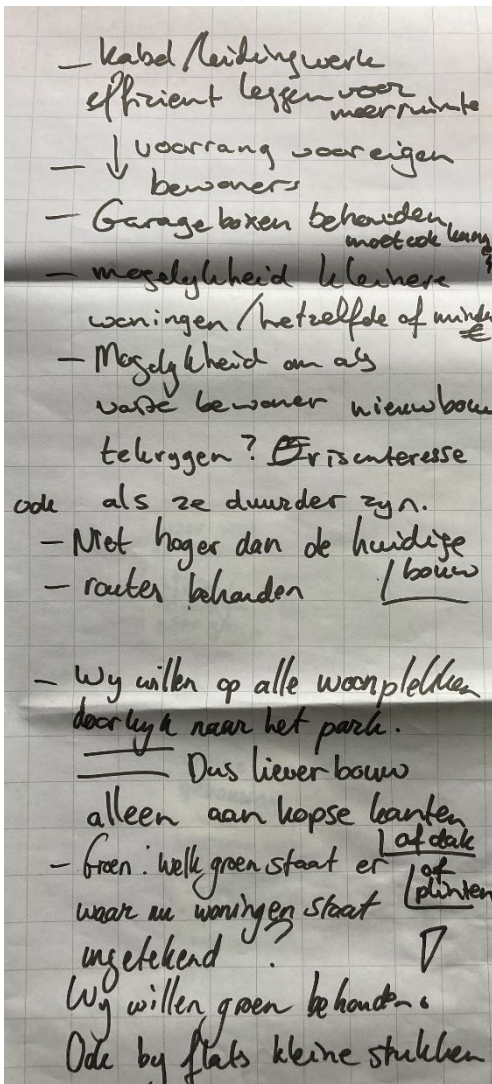 - kabel/leidingwerk
effizient leggen voor
meer ruimte
- ↓ voorrang voor eigen
bewoners
- Garageboxen behouden
moet ook kunn
- mogelykheid kleinere
woningen / hetzelfde of minder
€
- Mogelykheid om als
vaste bewoner nieuwbouw
te krygen? Er is interesse
ook als ze duurder zyn.
- Niet hoger dan de huidige
bouw
- routes behouden
- Wy willen op alle woonplekken
doorkyk naar het park.
Dus liever bouw
alleen aan kopse kanten
of dak
- Groen: welk groen staat er
of plinten
waar nu woningen staat
ingetekend ?
Wy willen groen behouden.
Ook by flats kleine stukken